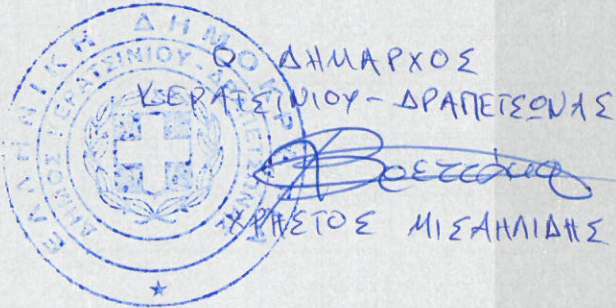 ΕΛΛΗΝΙΚΗ ΔΗΜΟΚΡΑΤΙΑ
ΔΗΜΟΣ ΚΕΡΑΤΣΙΝΙΟΥ - ΔΡΑΠΕΤΣΩΝΑΣ
Ο ΔΗΜΑΡΧΟΣ
ΚΕΡΑΤΣΙΝΙΟΥ - ΔΡΑΠΕΤΣΩΝΑΣ
ΧΡΗΣΤΟΣ ΜΙΣΑΗΛΙΔΗΣ